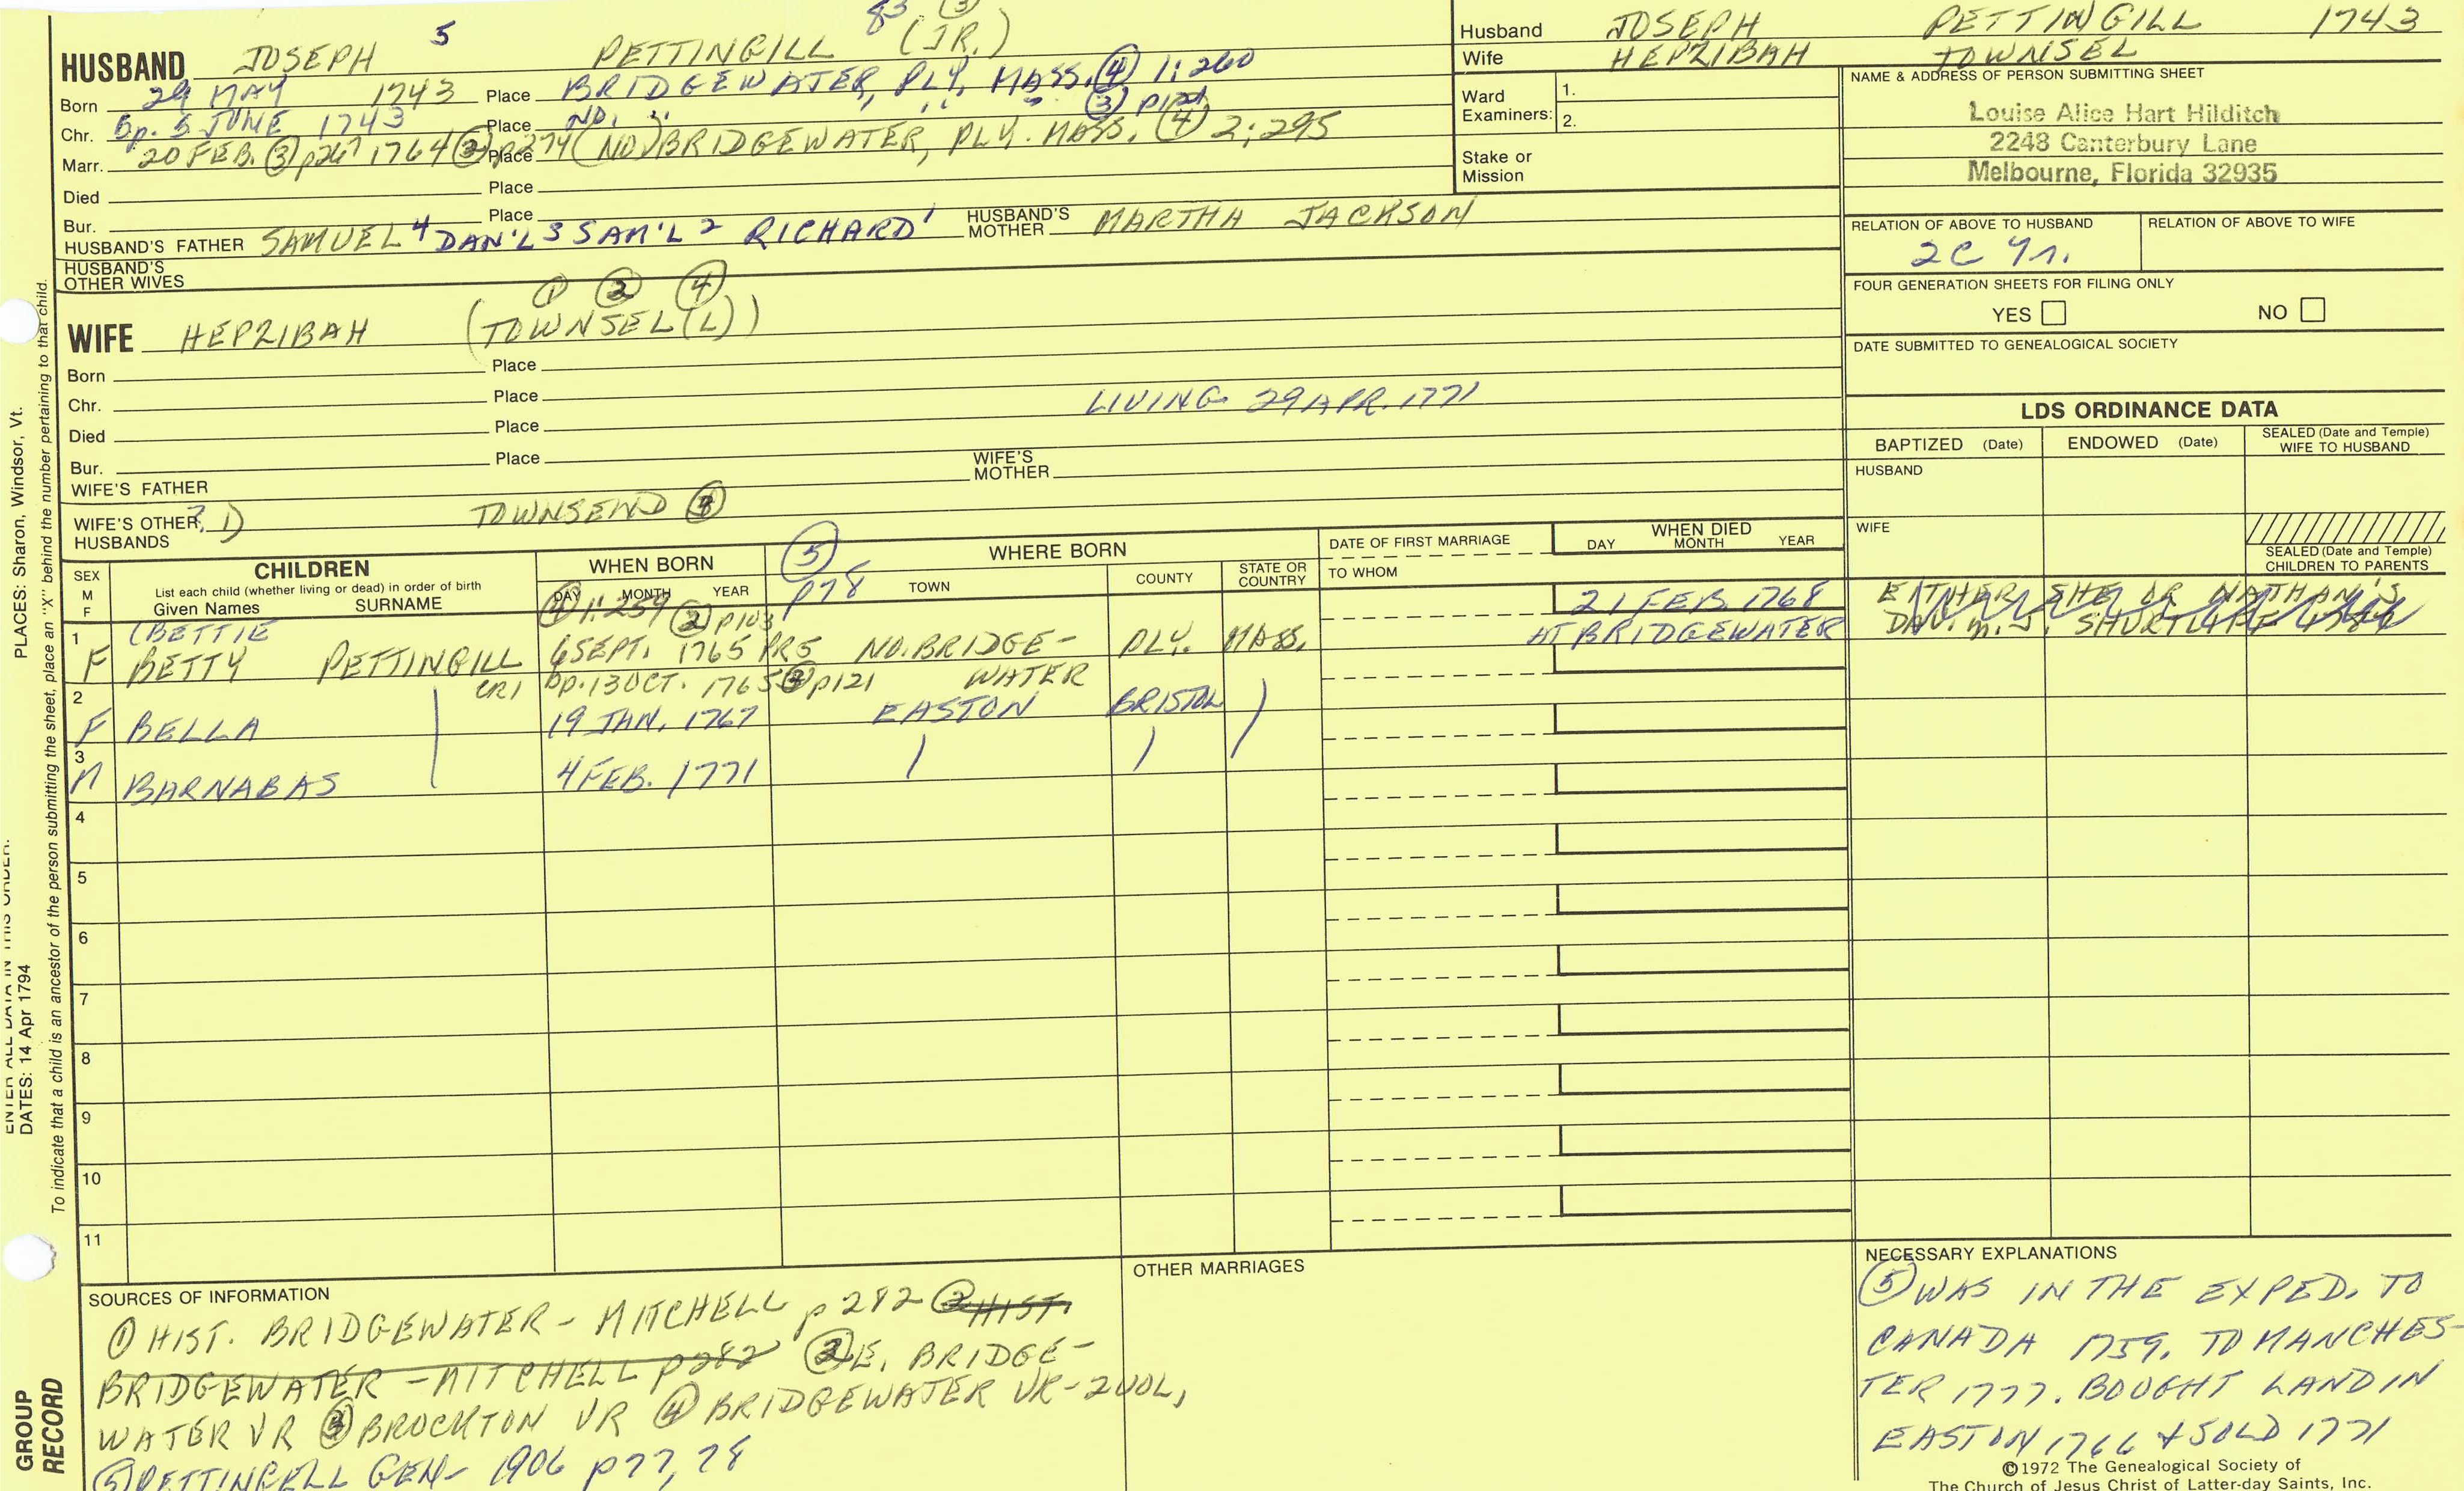 83 (3)
HUSBAND JOSEPH 5 PETTINGILL (JR.)
Born 29 MAY 1743 Place BRIDGEWATER, PLY. MASS. (4) 1:260
Chr. bp. 5 JUNE 1743 Place NO. " " " (3) p121
Marr. 20 FEB. (3) p267 1764 (2) p274 Place (NO.) BRIDGEWATER, PLY. MASS. (4) 2:295
Died Place
Bur. Place
HUSBAND'S FATHER SAMUEL 4 DAN'L 3 SAM'L 2 RICHARD 1 HUSBAND'S MOTHER MARTHA JACKSON
HUSBAND'S OTHER WIVES
(1) (2) (4)
WIFE HEPZIBAH (TOWNSEL(L))
Born Place
Chr. Place
LIVING 29 APR. 1771
Died Place
Bur. Place
WIFE'S FATHER WIFE'S MOTHER
WIFE'S OTHER HUSBANDS ? 1) TOWNSEND (4)
Husband JOSEPH PETTINGILL 1743
Wife HEPZIBAH TOWNSEL
Ward Examiners: 1.
2.
Stake or Mission
NAME & ADDRESS OF PERSON SUBMITTING SHEET
Louise Alice Hart Hilditch
2248 Canterbury Lane
Melbourne, Florida 32935
RELATION OF ABOVE TO HUSBAND RELATION OF ABOVE TO WIFE
2C 4r.
FOUR GENERATION SHEETS FOR FILING ONLY
YES NO
DATE SUBMITTED TO GENEALOGICAL SOCIETY
LDS ORDINANCE DATA
BAPTIZED (Date) ENDOWED (Date) SEALED (Date and Temple) WIFE TO HUSBAND
HUSBAND
WIFE
SEALED (Date and Temple) CHILDREN TO PARENTS
SEX M F
CHILDREN
List each child (whether living or dead) in order of birth
Given Names SURNAME
WHEN BORN
DAY MONTH YEAR
(5) p78
WHERE BORN
TOWN COUNTY STATE OR COUNTRY
DATE OF FIRST MARRIAGE
TO WHOM
WHEN DIED
DAY MONTH YEAR
(4) 1:259 (2) p103
1 (BETTIE 21 FEB. 1768 EITHER SHE OR NATHAN'S
F BETTY PETTINGILL 6 SEPT. 1765 PR5 NO. BRIDGE- PLY. MASS. AT BRIDGEWATER DAU. m. J. SHURTLIFF
CR1 bp. 13 OCT. 1765 (3) p121 WATER
2
F BELLA 19 JAN. 1767 EASTON BRISTOL
3
M BARNABAS 4 FEB. 1771
4
5
6
7
8
9
10
11
SOURCES OF INFORMATION
(1) HIST. BRIDGEWATER - MITCHELL p 282 (2) HIST.
BRIDGEWATER - MITCHELL p 282 (2) E. BRIDGE-
WATER VR (3) BROCKTON VR (4) BRIDGEWATER VR - 2 VOL.
(5) PETTINGELL GEN - 1906 p 77, 78
OTHER MARRIAGES
NECESSARY EXPLANATIONS
(5) WAS IN THE EXPED. TO
CANADA 1759. TO MANCHES-
TER 1777. BOUGHT LAND IN
EASTON 1766 & SOLD 1771
©1972 The Genealogical Society of
The Church of Jesus Christ of Latter-day Saints, Inc.
PLACES: Sharon, Windsor, Vt.
ENTER ALL DATA IN THIS ORDER:
DATES: 14 Apr 1794
To indicate that a child is an ancestor of the person submitting the sheet, place an "X" behind the number pertaining to that child.
GROUP
RECORD